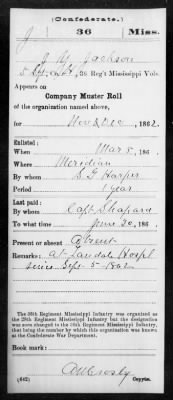 (Confederate.)
J 36 Miss.
J. Y. Jackson
36 Reg't Mississippi Vols.
Appears on
Company Muster Roll
of the organization named above,
for Nov & Dec, 1862.
Enlisted:
When Mar 5, 186 .
Where Meridian
By whom S G Harper
Period 1 year
Last paid:
By whom Capt Shapard
To what time June 30, 186 .
Present or absent Absent
Remarks: At Hospl
since Sept 5 - 1862
The 36th Regiment Mississippi Infantry was organized as
the 25th Regiment Mississippi Infantry but the designation
was soon changed to the 36th Regiment Mississippi Infantry,
that being the number by which this organization was known at
the Confederate War Department.
Book mark:
(642) Copyist.